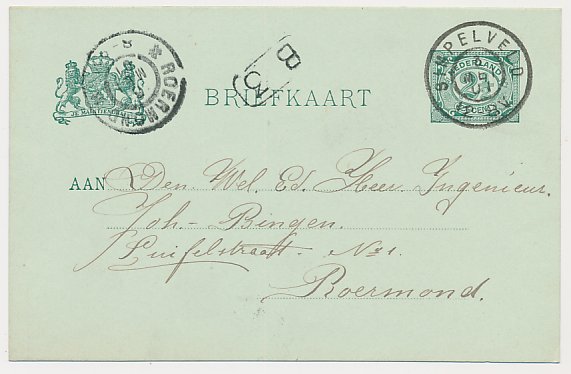 ROERMOND
SIMPELVELD
B
3
NEDERLAND
JE MAINTIENDRAI
BRIEFKAART
AAN Den Wel. Ed. Heer Ingenieur.
Joh- Bingen.
Luifelstraat. No 1.
Roermond.